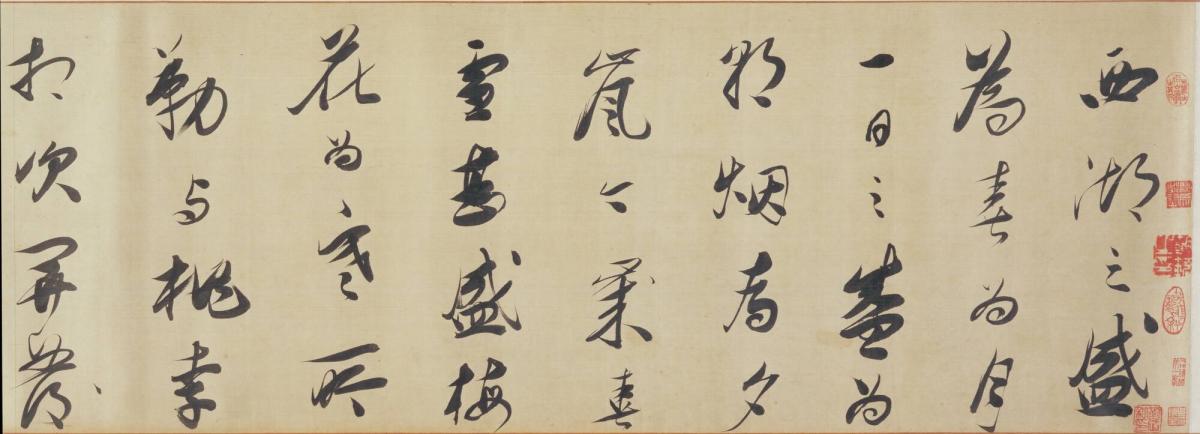 西湖之盛
為春為月
一日之盛為
朝烟為夕
嵐今歲春
雪甚盛梅
花為寒所
勒与桃李
相次開發